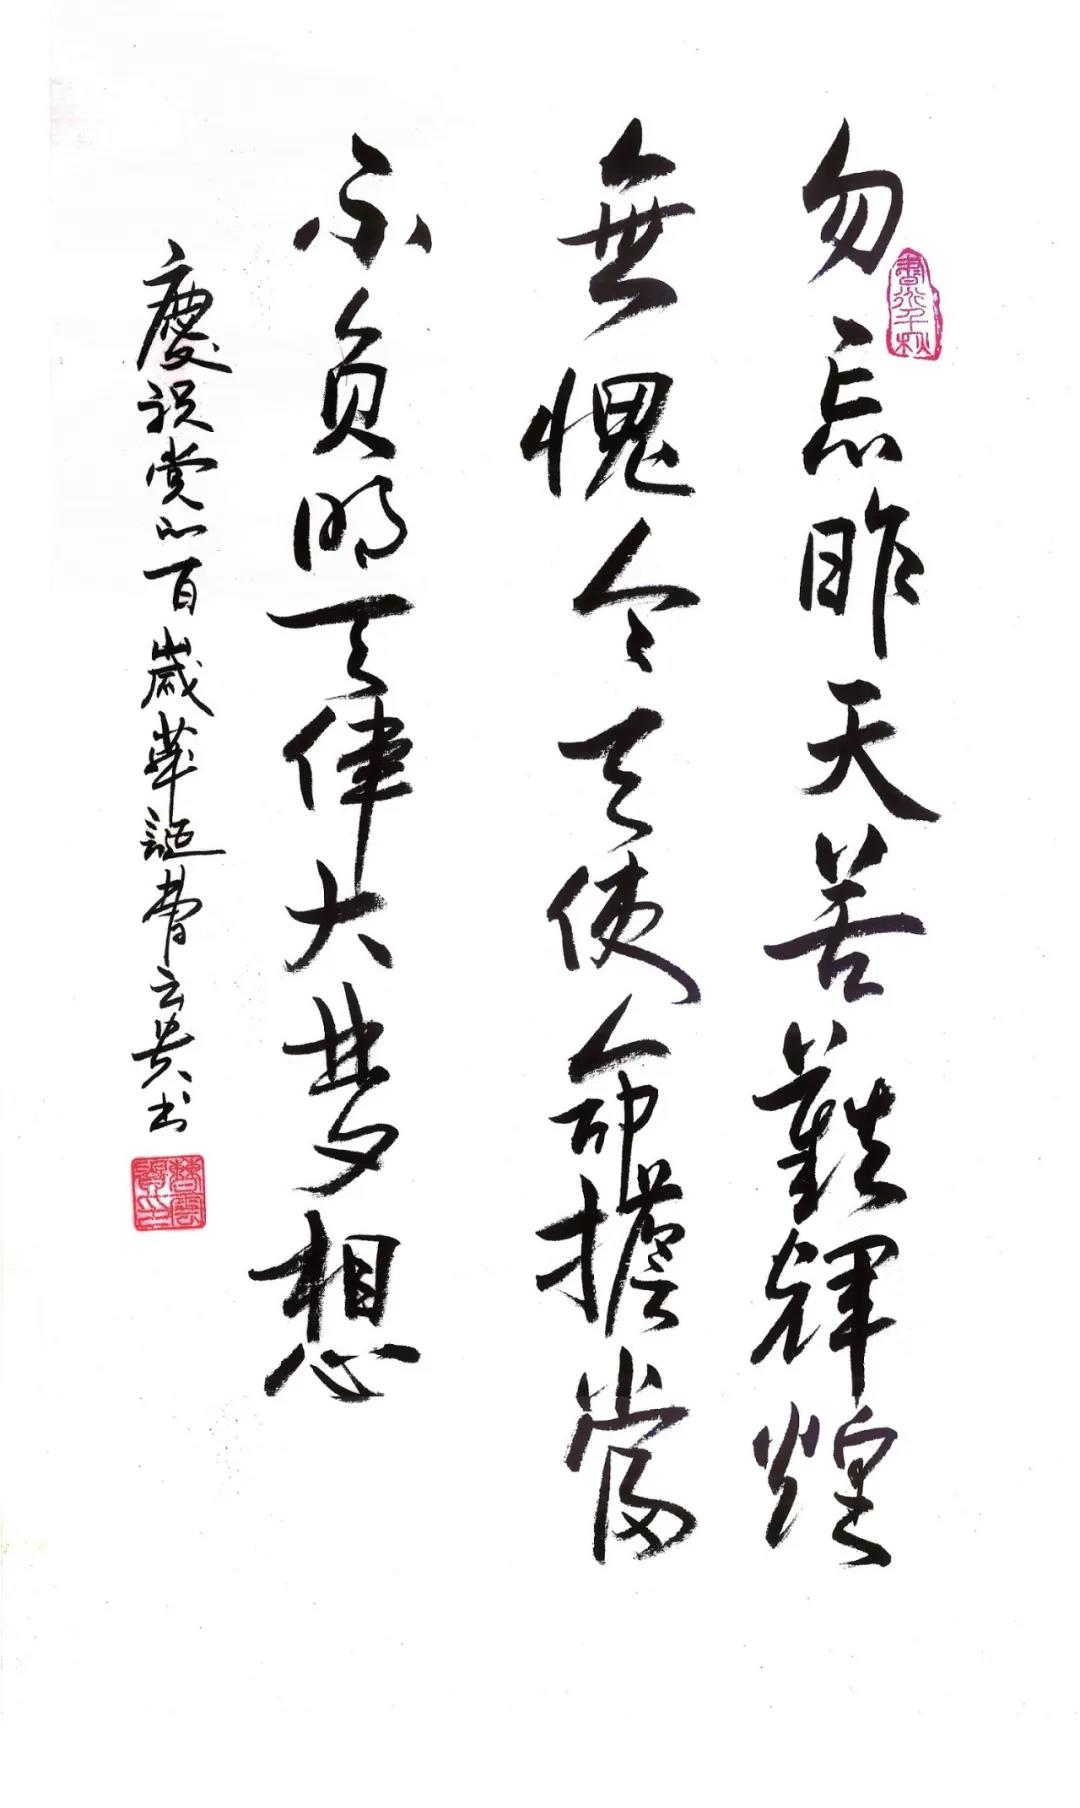 勿忘昨天苦難輝煌
無愧今天使命擔當
不负明天偉大梦想
慶祝党的百歲華誕曹云贵书